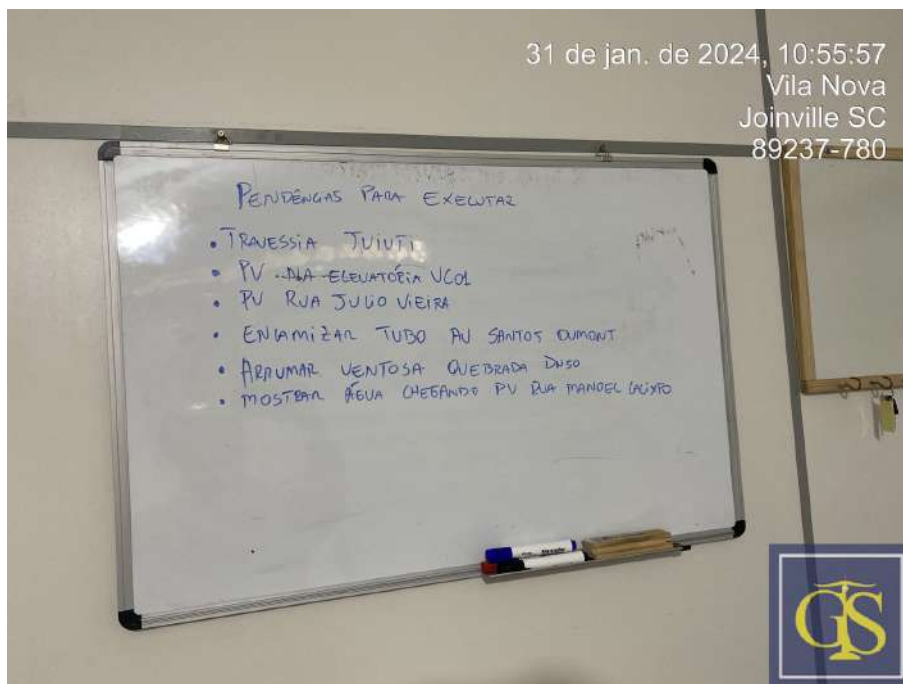 31 de jan. de 2024, 10:55:57
Vila Nova
Joinville SC
89237-780
PENDÊNCIAS PARA EXECUTAR
• TRAVESSIA TUIUTI
• PV DA ELEVATÓRIA VC01
• PV RUA JULIO VIEIRA
• ENCAMIZAR TUBO AV SANTOS DUMONT
• ARRUMAR VENTOSA QUEBRADA DN50
• MOSTRAR ÁGUA CHEGANDO PV RUA MANOEL CALIXTO
GTS